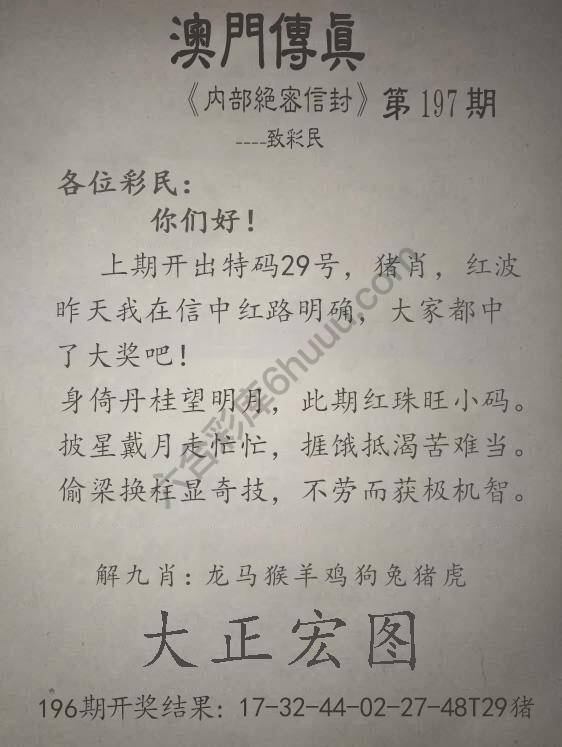 澳門傳真
《内部絕密信封》第197期
----致彩民
各位彩民：
你们好！
上期开出特码29号，猪肖，红波
昨天我在信中红路明确，大家都中
了大奖吧！
身倚丹桂望明月，此期红珠旺小码。
披星戴月走忙忙，捱饿抵渴苦难当。
偷梁换柱显奇技，不劳而获极机智。
解九肖：龙马猴羊鸡狗兔猪虎
大正宏图
196期开奖结果：17-32-44-02-27-48T29猪
六合彩库6huuu.com